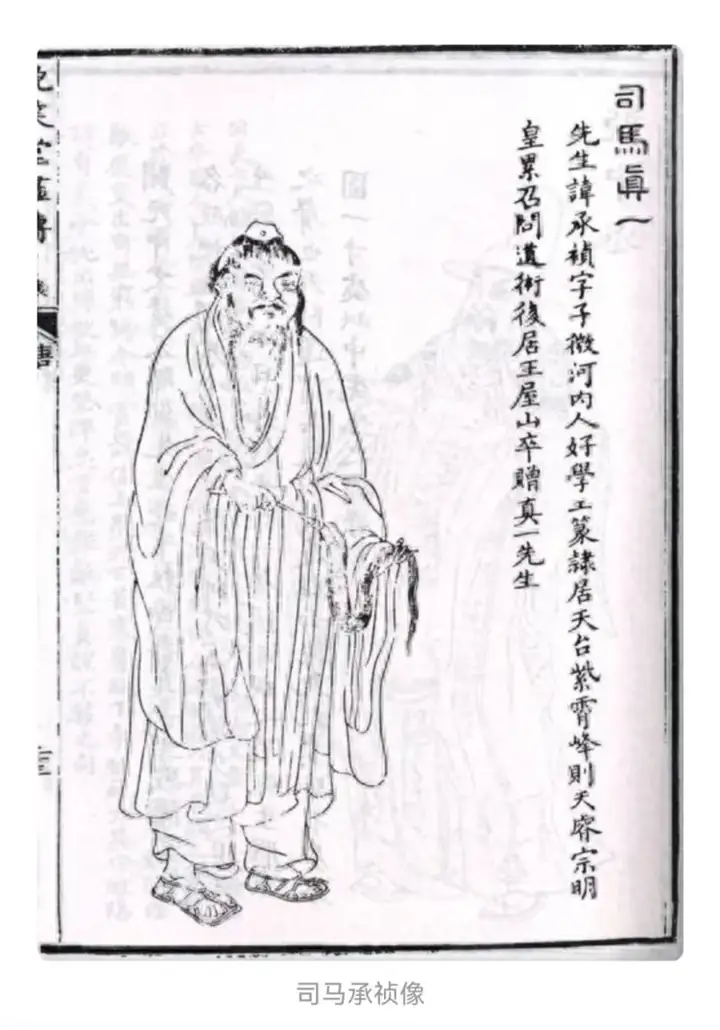 司馬眞一
先生諱承禎字子微河內人好學工篆隷居天台紫霄峰則天睿宗明
皇累召問道術後居王屋山卒贈真一先生
晚笑堂畫傳
司马承祯像